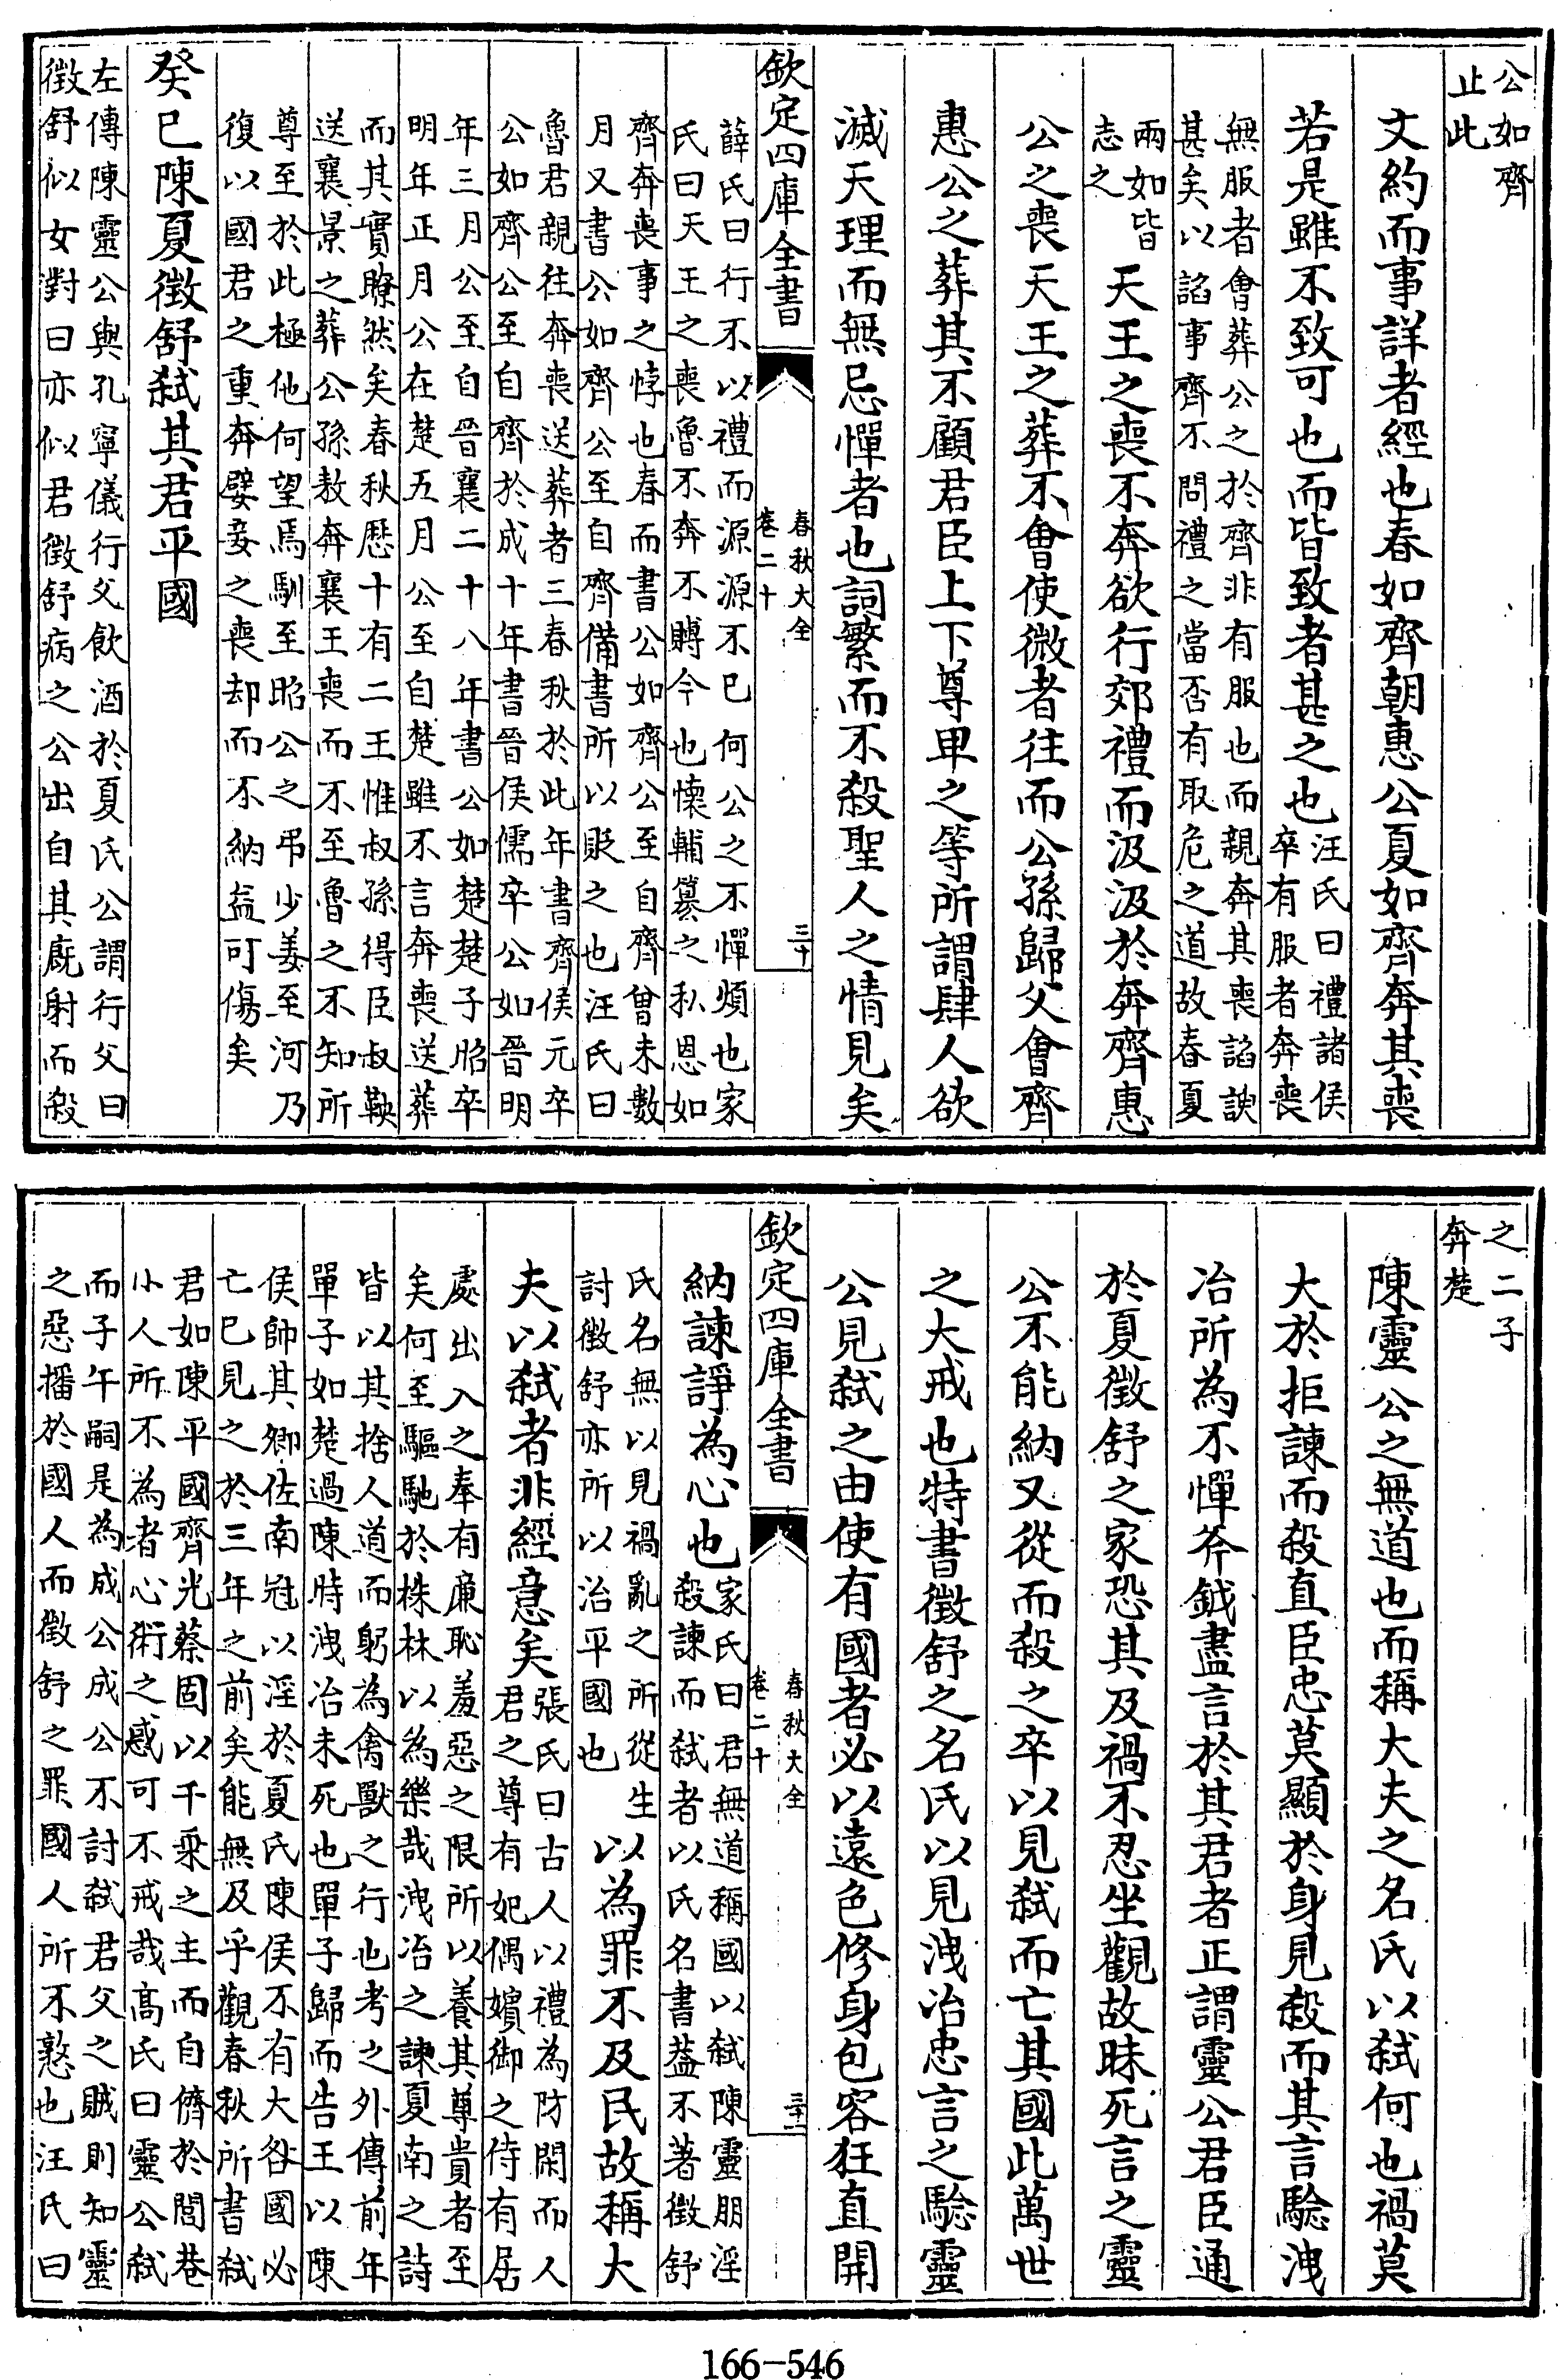 公如齊
止此
文約而事詳者經也春如齊朝惠公夏如齊奔其喪
若是雖不致可也而皆致者甚之也汪氏曰禮諸侯
卒有服者奔喪
無服者會葬公之於齊非有服也而親奔其喪諂諛
甚矣以諂事齊不問禮之當否有取危之道故春夏
兩如皆
志之
天王之喪不奔欲行郊禮而汲汲於奔齊惠
公之喪天王之葬不會使微者往而公孫歸父會齊
惠公之葬其不顧君臣上下尊卑之等所謂肆人欲
滅天理而無忌憚者也詞繁而不殺聖人之情見矣
欽定四庫全書
春秋大全
卷二十
三十
薛氏曰行不以禮而源源不已何公之不憚煩也家
氏曰天王之喪魯不奔不賻今也懷輔篡之私恩如
齊奔喪事之悖也春而書公如齊公至自齊曾未數
月又書公如齊公至自齊備書所以貶之也汪氏曰
魯君親往奔喪送葬者三春秋於此年書齊侯元卒
公如齊公至自齊於成十年書晉侯獳卒公如晉明
年三月公至自晉襄二十八年書公如楚楚子昭卒
明年正月公在楚五月公至自楚雖不言奔喪送葬
而其實瞭然矣春秋歷十有二王惟叔孫得臣叔鞅
送襄景之葬公孫敖奔襄王喪而不至魯之不知所
尊至於此極他何望焉馴至昭公之弔少姜至河乃
復以國君之重奔嬖妾之喪却而不納益可傷矣
癸巳陳夏徵舒弑其君平國
左傳陳靈公與孔寧儀行父飲酒於夏氏公謂行父曰
徵舒似女對曰亦似君徵舒病之公出自其廐射而殺
之二子
奔楚
陳靈公之無道也而稱大夫之名氏以弑何也禍莫
大於拒諫而殺直臣忠莫顯於身見殺而其言驗洩
冶所為不憚斧鉞盡言於其君者正謂靈公君臣通
於夏徵舒之家恐其及禍不忍坐觀故昧死言之靈
公不能納又從而殺之卒以見弑而亡其國此萬世
之大戒也特書徵舒之名氏以見洩冶忠言之驗靈
公見弑之由使有國者必以遠色修身包容狂直開
欽定四庫全書
春秋大全
卷二十
三十一
納諫諍為心也家氏曰君無道稱國以弑陳靈朋淫
殺諫而弑者以氏名書葢不著徵舒
氏名無以見禍亂之所從生
討徵舒亦所以治平國也
以為罪不及民故稱大
夫以弑者非經意矣張氏曰古人以禮為防閑而人
君之尊有妃偶嬪御之侍有居
處出入之奉有廉恥羞惡之限所以養其尊貴者至
矣何至驅馳於株林以為樂哉洩冶之諫夏南之詩
皆以其捨人道而躬為禽獸之行也考之外傳前年
單子如楚過陳時洩冶未死也單子歸而告王以陳
侯帥其卿佐南冠以淫於夏氏陳侯不有大咎國必
亡已見之於三年之前矣能無及乎觀春秋所書弑
君如陳平國齊光蔡固以千乘之主而自儕於閭巷
小人所不為者心術之惑可不戒哉高氏曰靈公弑
而子午嗣是為成公成公不討弑君父之賊則知靈
之惡播於國人而徵舒之罪國人所不憝也汪氏曰
166-546